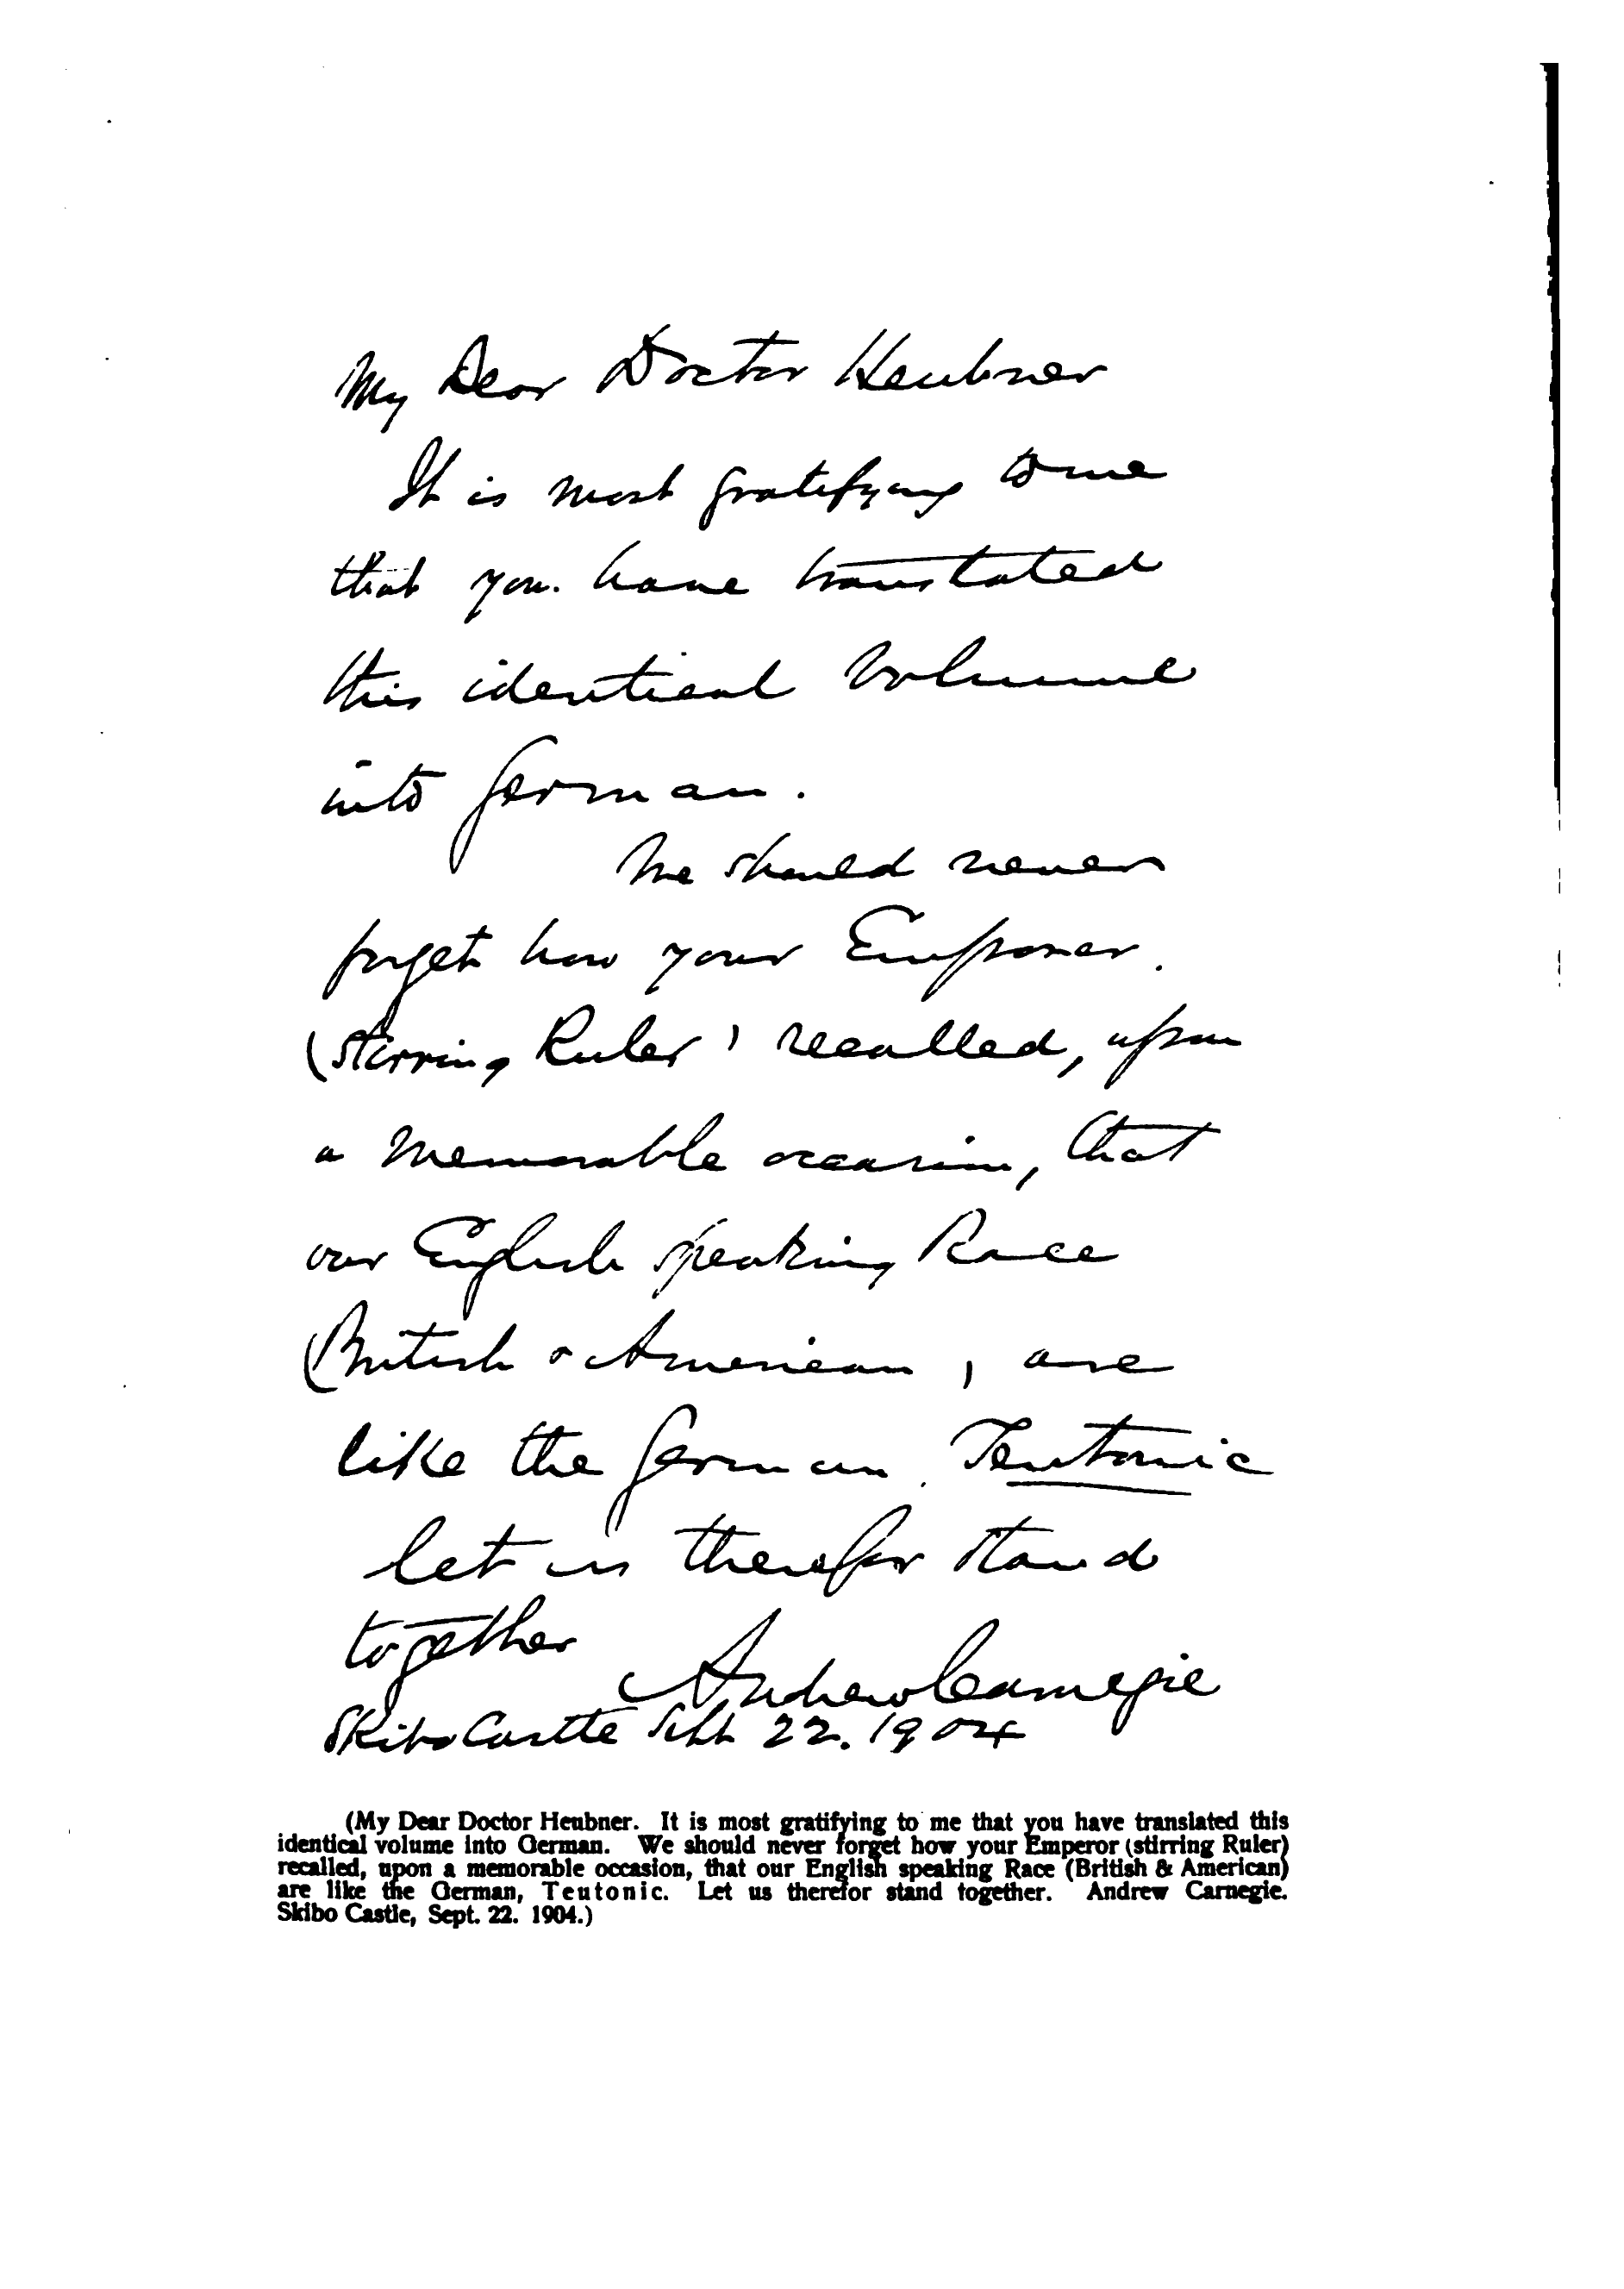 My Dear Doctor Heubner
It is most gratifying to me
that you have translated
this identical Volume
into German.
We should never
forget how your Emperor
(stirring Ruler) recalled, upon
a memorable occasion, that
our English speaking Race
(British & American) are
like the German, Teutonic
let us therefor stand
together
Andrew Carnegie
Skibo Castle Sept 22. 1904
(My Dear Doctor Heubner. It is most gratifying to me that you have translated this
identical volume into German. We should never forget how your Emperor (stirring Ruler)
recalled, upon a memorable occasion, that our English speaking Race (British & American)
are like the German, Teutonic. Let us therefor stand together. Andrew Carnegie.
Skibo Castle, Sept. 22. 1904.)